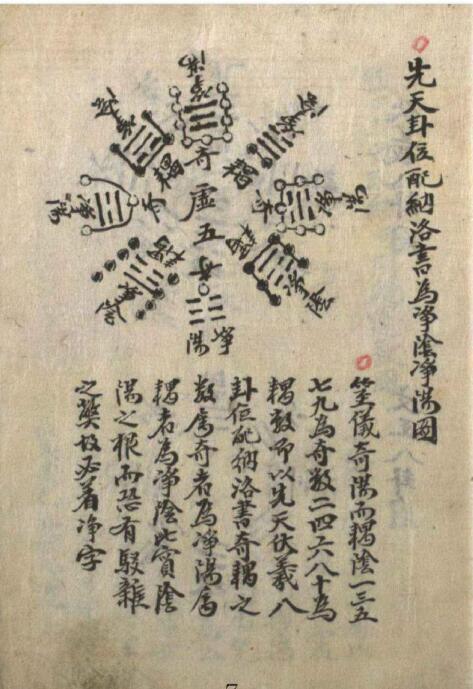 先天卦位配納洛書為淨陰淨陽圖
奇
虛五
耦
耦
淨陽
淨陰
淨陽
儀奇陽而耦陰一三五
七九為奇數二四六八十為
耦數即以先天伏羲八
卦位配納洛書奇耦之
數屬奇者為淨陽屬
耦者為淨陰此實陰
陽之根而恐有駁雜
之獘故必着净字
7